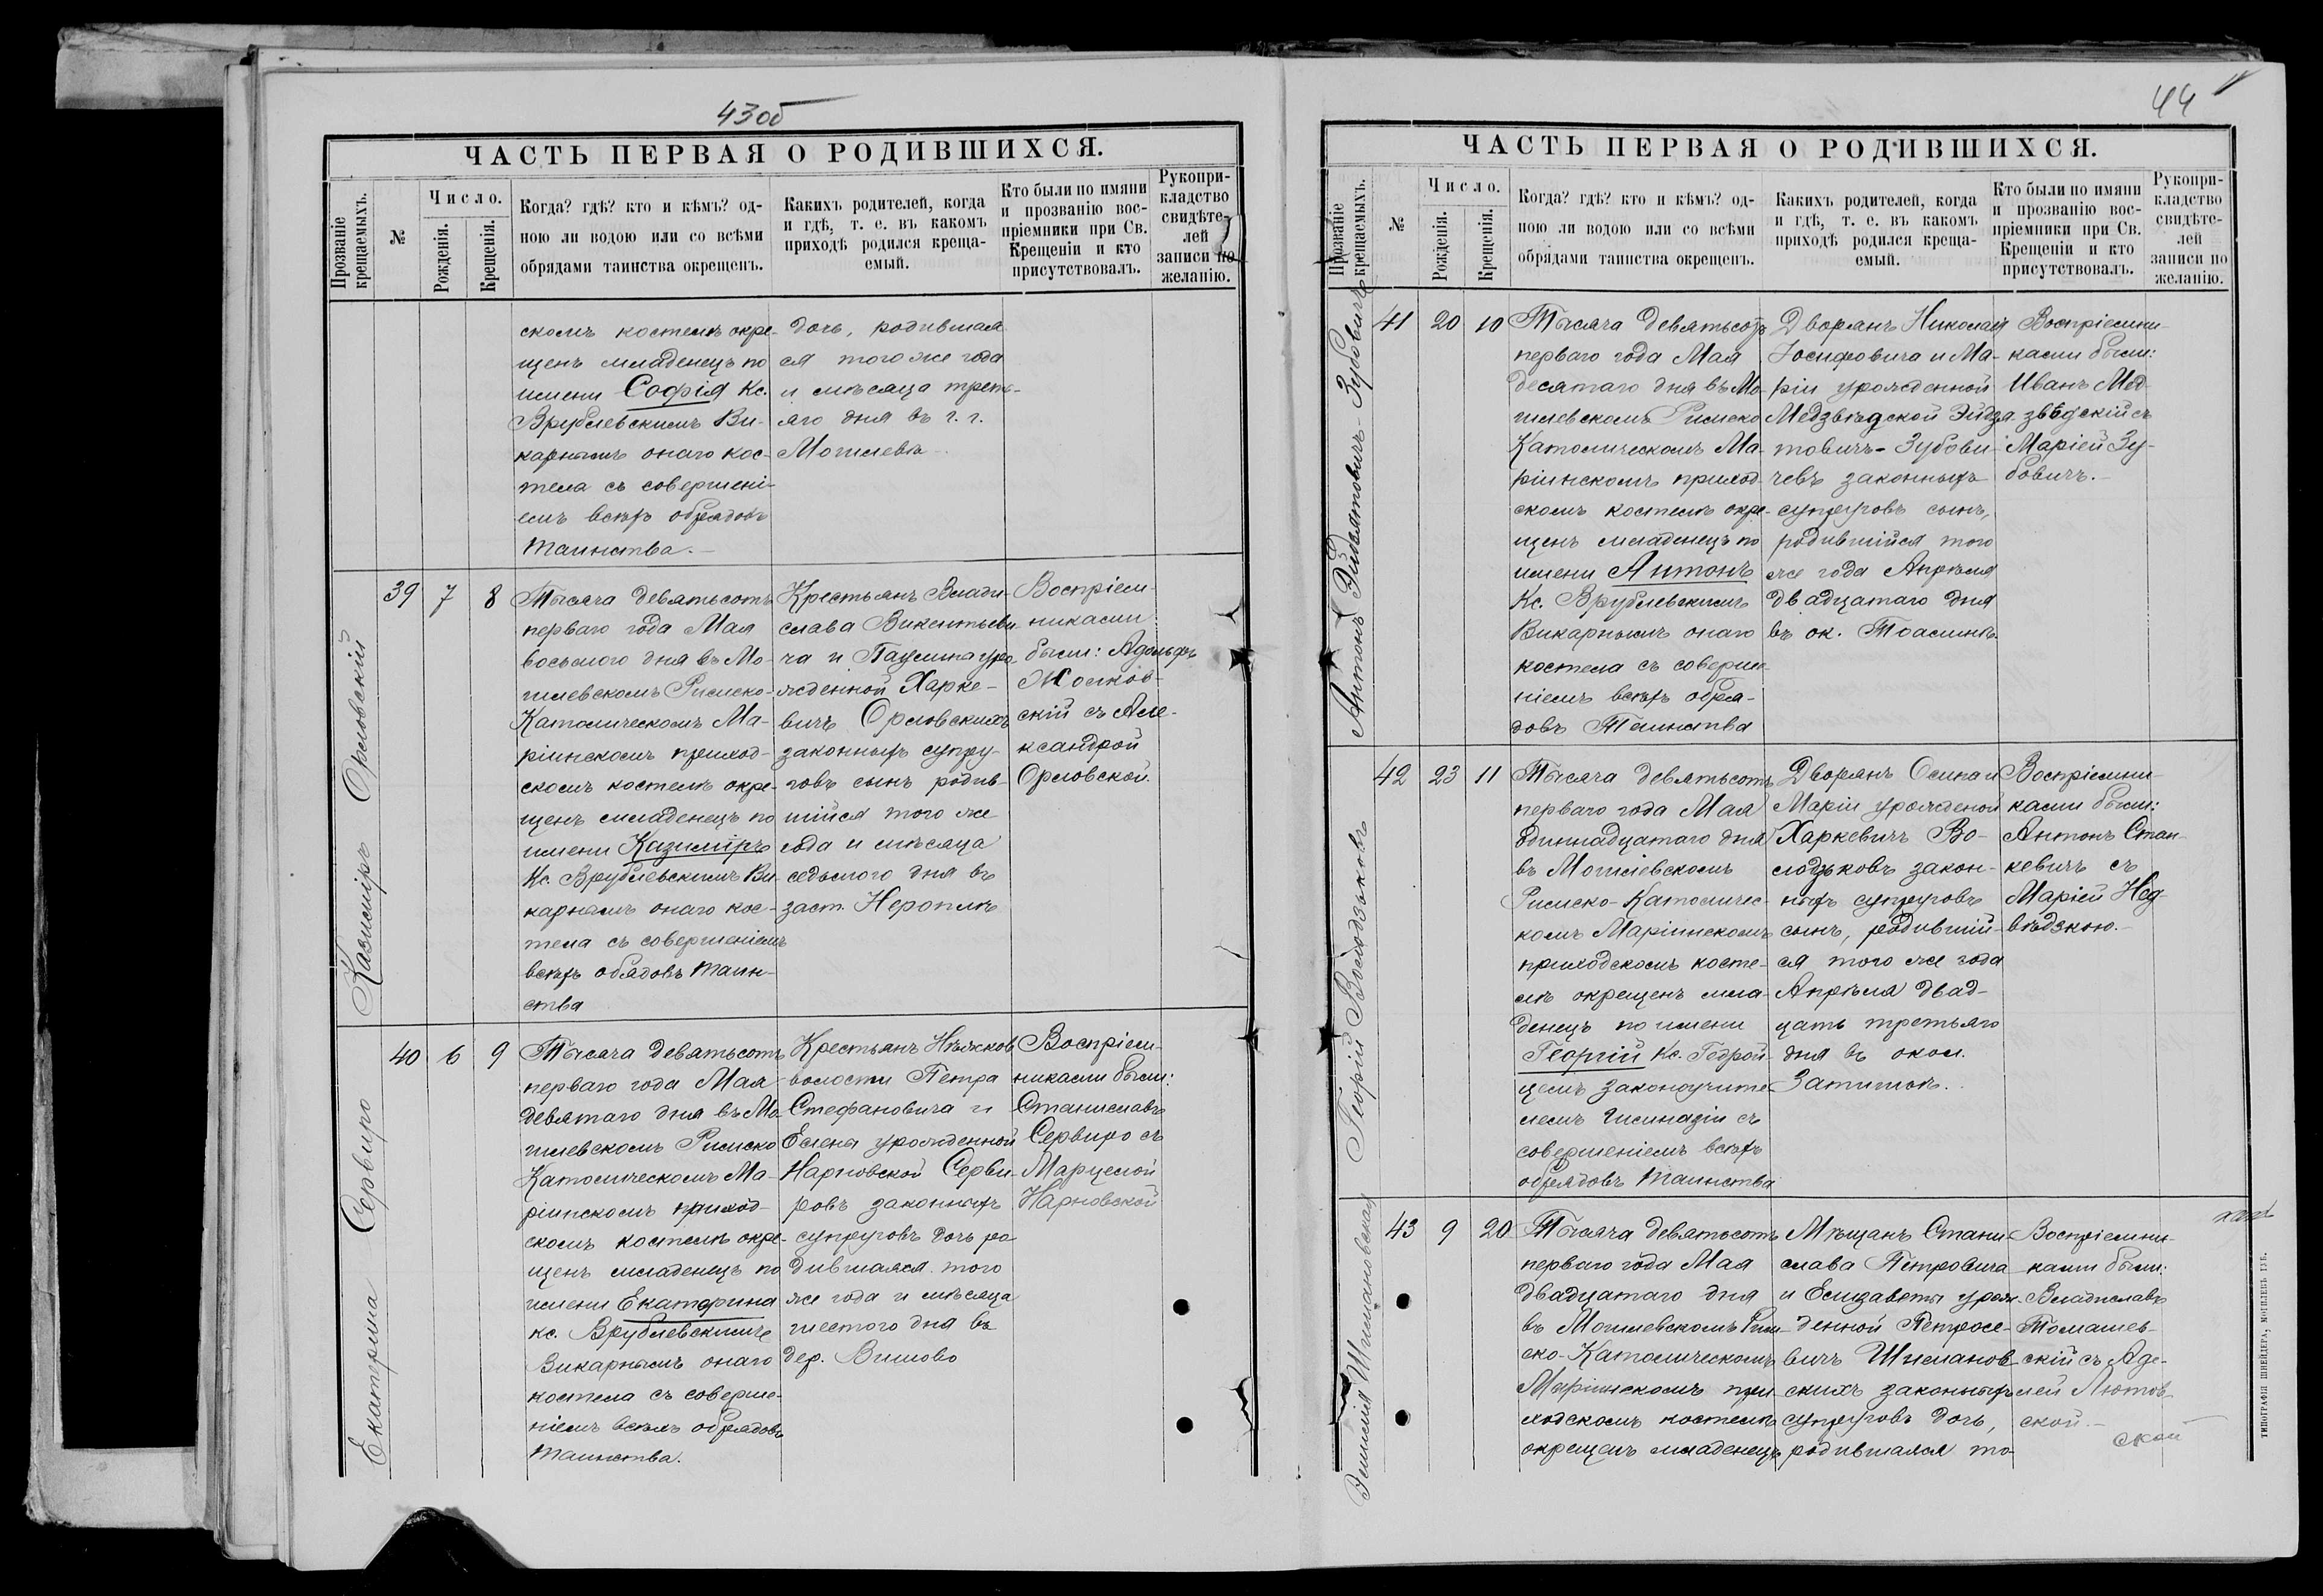 43об
ЧАСТЬ ПЕРВАЯ О РОДИВШИХСЯ.
Прозваніе крещаемыхъ.
№
Число.
Рожденія.
Крещенія.
Когда? гдѣ? кто и кѣмъ? од-
ною ли водою или со всѣми
обрядами таинства окрещенъ.
Какихъ родителей, когда
и гдѣ, т. е. въ какомъ
приходѣ родился креща-
емый.
Кто были по имяни
и прозванію вос-
пріемники при Св.
Крещеніи и кто
присутствовалъ.
Рукопри-
кладство
свидѣте-
лей
записи по
желанію.
скомъ костелѣ окре-
щенъ младенецъ по
имени Софія Кс.
Врублевскимъ Ви-
карнымъ онаго кос-
тела съ совершені-
емъ всѣхъ обрядовъ
таинства.
дочь, родившая
ся того же года
и мѣсяца треть-
яго дня въ г. г.
Могилевѣ
Казиміръ Орловскій
39 7 8
Тысяча девятьсотъ
перваго года Мая
восьмого дня въ Мо-
гилевскомъ Римско-
Католическомъ Ма-
ріинскомъ приход-
скомъ костелѣ окре-
щенъ младенецъ по
имени Казиміръ
Кс. Врублевскимъ Ви-
карнымъ онаго кос-
тела съ совершеніемъ
всѣхъ обядовъ таин-
ства
Крестьянъ Влади-
слава Викентьеви-
ча и Паулина уро-
жденной Харке-
вичъ Орловскихъ
законныхъ супру-
говъ сынъ родив-
шійся того же
года и мѣсяца
седьмого дня въ
заст. Нероплѣ
Воспріем-
никами
были: Адольфъ
скій съ Але-
ксандрой
Орловской.
Екатерина Сервиро
40 6 9
Тысяча девятьсотъ
перваго года Мая
девятаго дня въ Мо-
гилевскомъ Римско
Католическомъ Ма-
ріинскомъ приход-
скомъ костелѣ окре-
щенъ младенецъ по
имени Екатерина
кс. Врублевскимъ
Викарнымъ онаго
костела съ соверше-
ніемъ всѣхъ обрядовъ
таинства.
Крестьянъ
волости Петра
Стефановича и
Елены урожденной
Нарновской Серви-
ровъ законныхъ
супруговъ дочь ро
дившаяся того
же года и мѣсяца
шестого дня въ
дер. Вилово
Воспріем-
никами были:
Станиславъ
Сервиро съ
Марцелой
Нарновской
44
ЧАСТЬ ПЕРВАЯ О РОДИВШИХСЯ.
Прозваніе крещаемыхъ.
№
Число.
Рожденія.
Крещенія.
Когда? гдѣ? кто и кѣмъ? од-
ною ли водою или со всѣми
обрядами таинства окрещенъ.
Какихъ родителей, когда
и гдѣ, т. е. въ какомъ
приходѣ родился креща-
емый.
Кто были по имяни
и прозванію вос-
пріемники при Св.
Крещеніи и кто
присутствовалъ.
Рукопри-
кладство
свидѣте-
лей
записи по
желанію.
Антонъ Эйдзятовичъ-Зубовичъ
41 20 10
Тысяча девятьсотъ
перваго года Мая
десятаго дня въ Мо-
гилевскомъ Римско
Католическомъ Ма-
ріинскомъ приход-
скомъ костелѣ окре-
щенъ младенецъ по
имени Антонъ
Кс. Врублевскимъ
Викарнымъ онаго
костела съ соверше-
ніемъ всѣхъ обря-
довъ Таинства
Дворянъ Николай
Іосифовича и Ма-
ріи урожденной
Медзвѣдской Эйдзя-
товичъ-Зубови-
чевъ законныхъ
супруговъ сынъ,
родившійся того
же года Апрѣля
двадцатаго дня
въ ок.
Воспріемни-
ками были:
Иванъ Мед-
звѣдскій съ
Маріей Зу-
бовичъ.
Георгій Володзьковъ
42 23 11
Тысяча девятьсотъ
перваго года Мая
одиннадцатаго дня
въ Могилевскомъ
Римско-Католичес-
комъ Маріинскомъ
приходскомъ косте-
лѣ окрещенъ мла-
денецъ по имени
Георгій Кс. Гедрой-
цемъ законоучите-
лемъ гимназіи съ
совершеніемъ всѣхъ
обрядовъ таинства
Дворянъ Осипа и
Маріи урожденой
Харкевичъ Во-
лодзьковъ закон-
ныхъ супруговъ
сынъ, родившій-
ся того же года
Апрѣля двад-
цать третьяго
дня въ окол.
Затишок.
Воспріемни-
ками были:
Антонъ Стан-
кевичъ съ
Маріей Нед-
вѣдзкою.
Шимановская
43 9 20
Тысяча девятьсотъ
перваго года Мая
двадцатаго дня
въ Могилевскомъ Рим-
ско-Католическомъ
Маріинскомъ при
ходскомъ костелѣ
окрещенъ младенецъ
Мѣщанъ Стани-
слава Петровича
и Елизаветы урож-
денной Петросе-
вичъ Шиманов-
скихъ законныхъ
супруговъ дочь,
родившаяся то-
Воспріемни-
ками были:
Владиславъ
Томашев-
скій съ Аде-
лей Лютов-
ской.
ской
ТИПОГРАФІЯ ШНЕЙДЕРА, МОГИЛЕВЪ ГУБ.